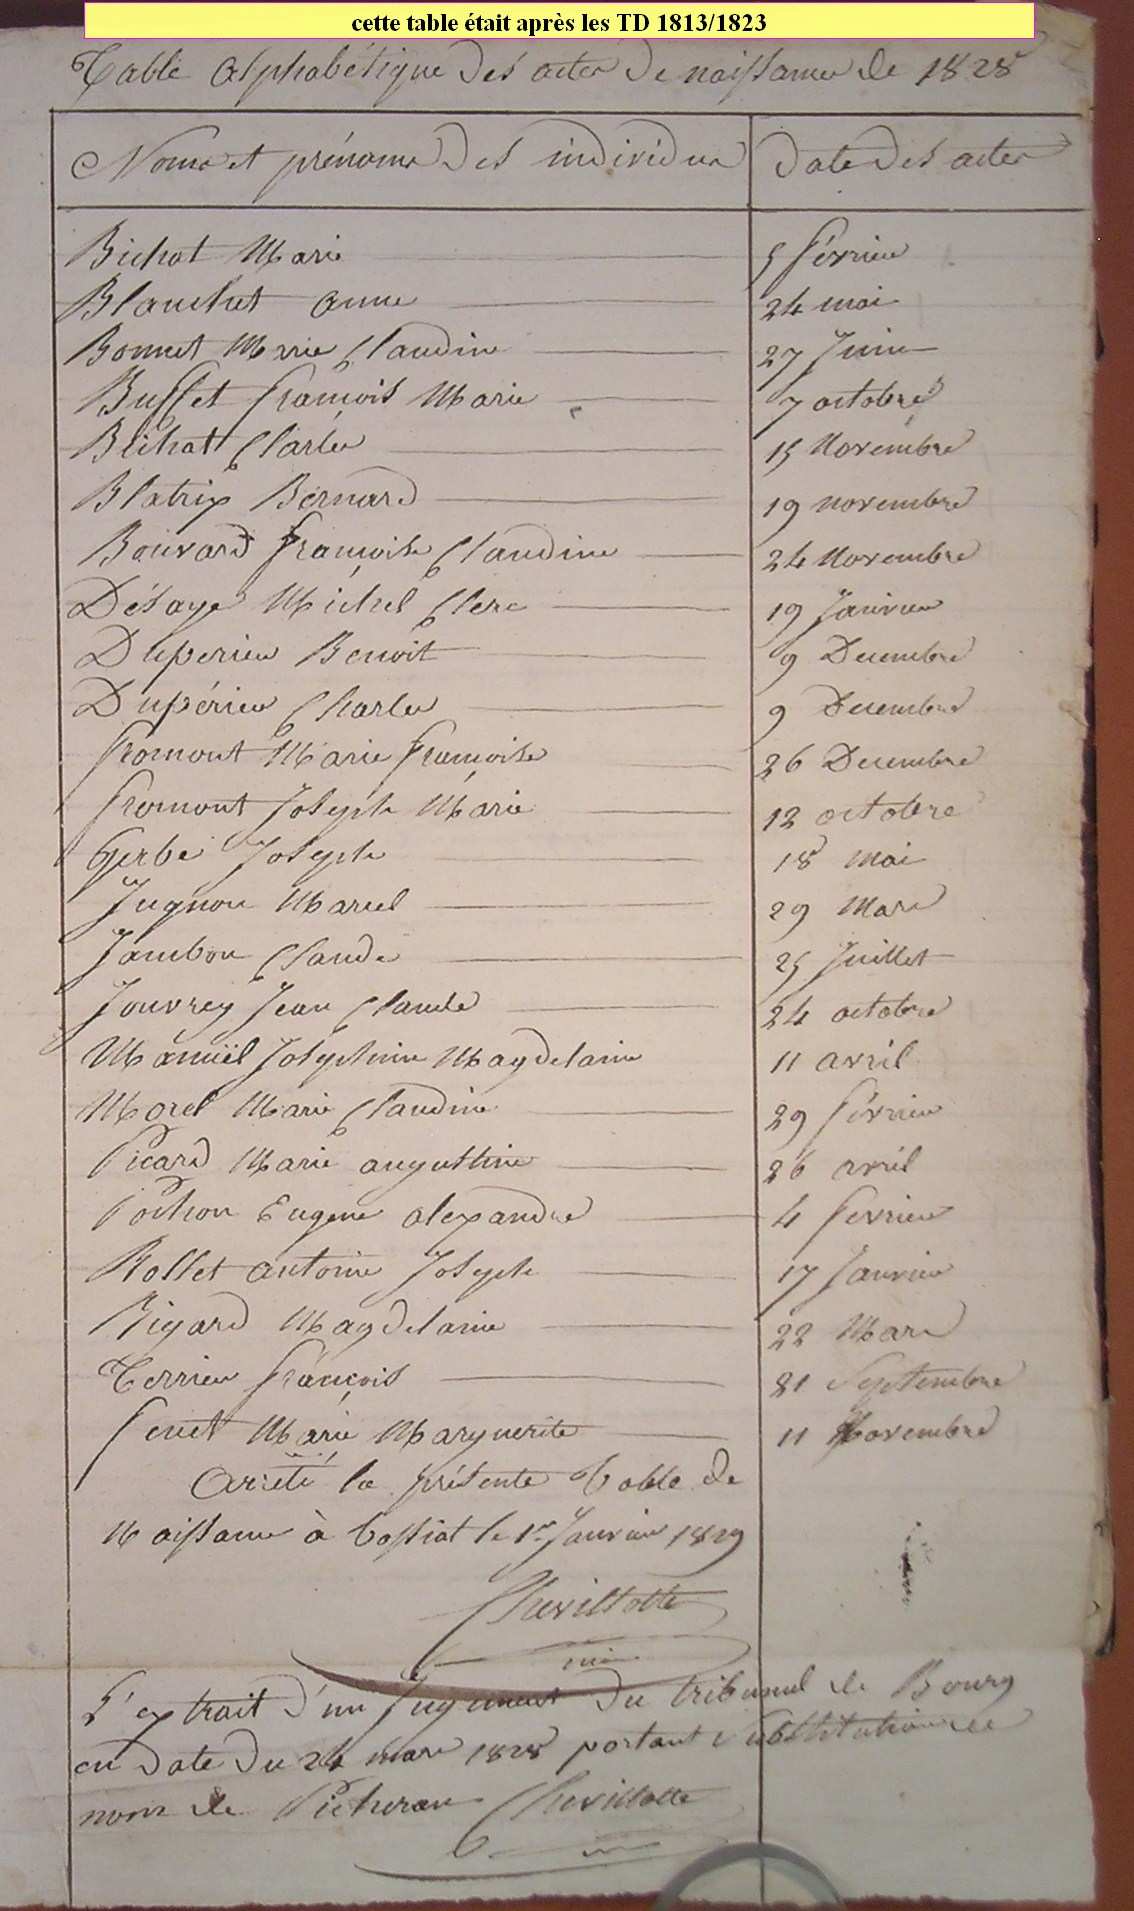 cette table était après les TD 1813/1823
Table alphabétique des actes de naissance de 1828
Noms et prénoms des individus Date des actes
Bichat Marie 5 février
Blanchet anne 24 mai
Bonnet Marie Claudine 27 Juin
Buffet françois Marie 7 octobre
Bichat Charles 15 Novembre
Blatrix Bernard 19 novembre
Bouvard françoise Claudine 24 Novembre
Désaye Michel Clerc 19 Janvier
Duperieu Benoit 9 Decembre
Dupérieu Charles 9 Decembre
fromont Marie françoise 26 Decembre
fromont Joseph Marie 12 octobre
Gerbe Joseph 18 mai
Jugnon Marcel 29 Mars
Jambon Claude 25 Juillet
Jouvrey Jean Claude 24 octobre
Manuël Josephine Magdelaine 11 avril
Morel Marie Claudine 29 février
Picard Marie augustine 26 avril
Pochon Eugene alexandre 4 fevrier
Rollet antoine Joseph 17 Janvier
Rigard Magdelaine 22 Mars
Terrier françois 21 Septembre
feuet Marie Marguerite 11 Novembre
arrêté la présente Table de
Naissance à Cossiat le 1er Janvier 1829
Chevillotte
L'extrait d'un Jugement du tribunal de Bourg
en date du 24 mars 1828 portant substitution de
nom de Picheran Chevillotte